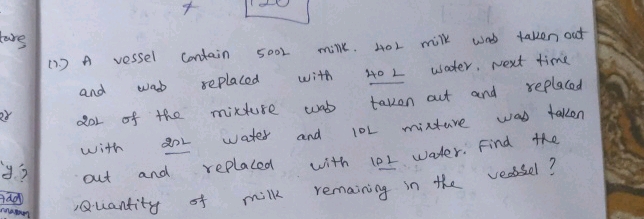 120
tare
(1) A vessel contain 500L milk. 40L milk was taken out
and was replaced with 40 L water. Next time
20L of the mixture was taken out and replaced
with 20L water and 10L mixture was taken
out and replaced with 10L water. Find the
Quantity of milk remaining in the vessel?